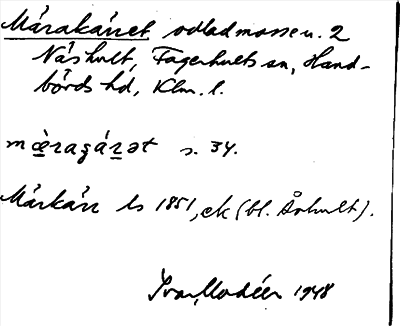 Márakárret odladmosse u. 2
Näshult, Fagerhults sn, Hand-
börds hd, Klm. l.
s. 34.
Márkärr ls 1851, ek (bl. Århult).
Ivar Modéer 1948